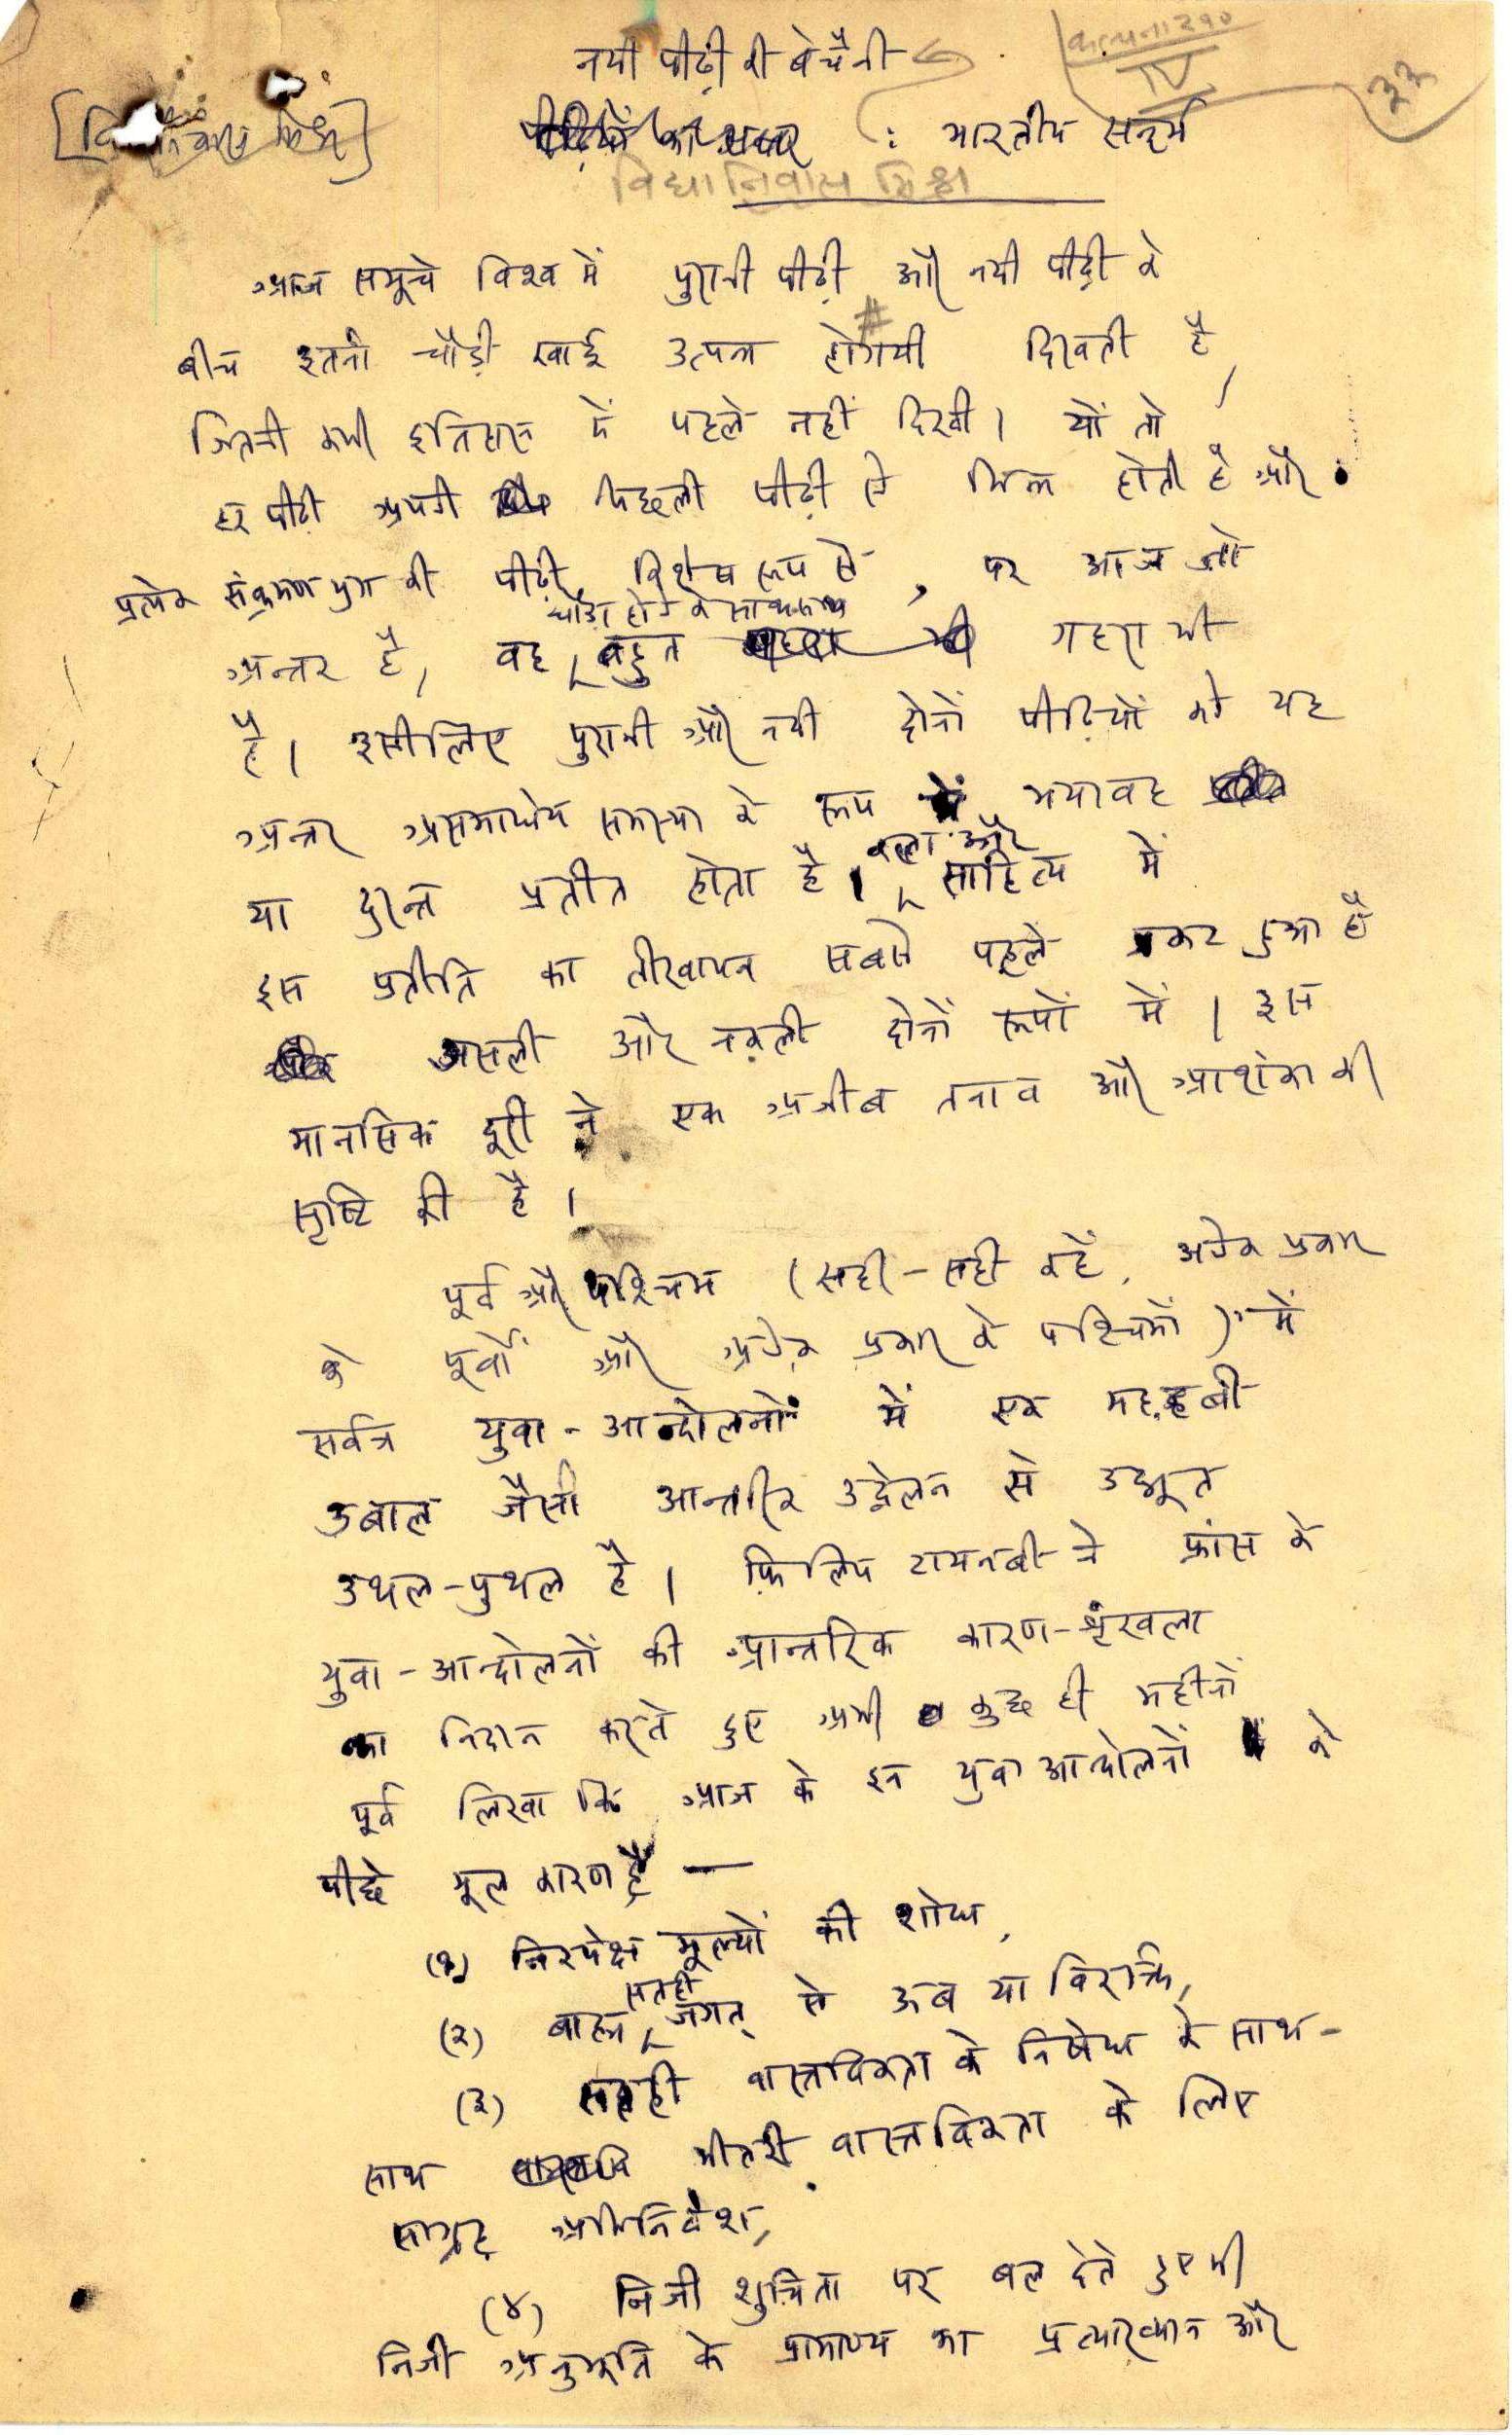 नयी पीढ़ी की बेचैनी
कल्पना २१०
IV
३३
: भारतीय सन्दर्भ
विद्यानिवास मिश्र
आज समूचे विश्व में पुरानी पीढ़ी और नयी पीढ़ी के
बीच इतनी चौड़ी खाई उत्पन्न होगयी दिखती है,
जितनी कभी इतिहास में पहले नहीं दिखी। यों तो
हर पीढ़ी अपनी पिछली पीढ़ी से भिन्न होती है और
प्रत्येक संक्रमण युग की पीढ़ी विशेष रूप से, पर आज जो
चौड़ा होने के साथ-साथ
अन्तर है, वह बहुत गहरा भी
है। इसीलिए पुरानी और नयी दोनों पीढ़ियों को यह
अन्तर असमाधेय समस्या के रूप में भयावह
कला और
या दुरन्त प्रतीत होता है। साहित्य में
इस प्रतीति का तीखापन सबसे पहले प्रकट हुआ है
असली और नकली दोनों रूपों में। इस
मानसिक दूरी ने एक अजीब तनाव और आशंका की
सृष्टि की है।
पूर्व और पश्चिम (सही-सही कहें, अनेक प्रकार
के पूर्वों और अनेक प्रकार के पश्चिमों) में
सर्वत्र युवा-आन्दोलनों में एक मज़हबी
उबाल जैसी आन्तरिक उद्वेलन से उद्भूत
उथल-पुथल है। फ़िलिप टायनबी ने फ्रांस के
युवा-आन्दोलनों की आन्तरिक कारण-शृंखला
का निदान करते हुए अभी कुछ ही महीनों
पूर्व लिखा कि आज के इन युवा आन्दोलनों के
पीछे मूल कारण हैं —
(१) निरपेक्ष मूल्यों की शोध,
सतही
(२) बाह्य जगत् से ऊब या विरक्ति,
(३) सतही वास्तविकता के निषेध के साथ-
साथ भीतरी वास्तविकता के लिए
साग्रह अभिनिवेश,
(४) निजी शुचिता पर बल देते हुए भी
निजी अनुभूति के प्रामाण्य का प्रत्याख्यान और